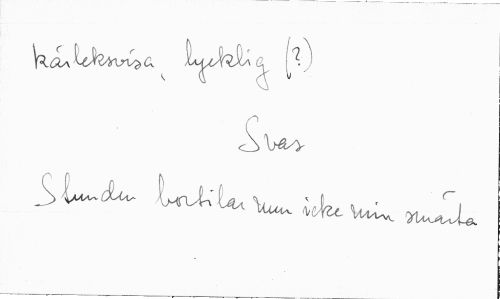 kärleksvisa, lycklig (?)
Svas
Stunden bortilar men icke min smärta